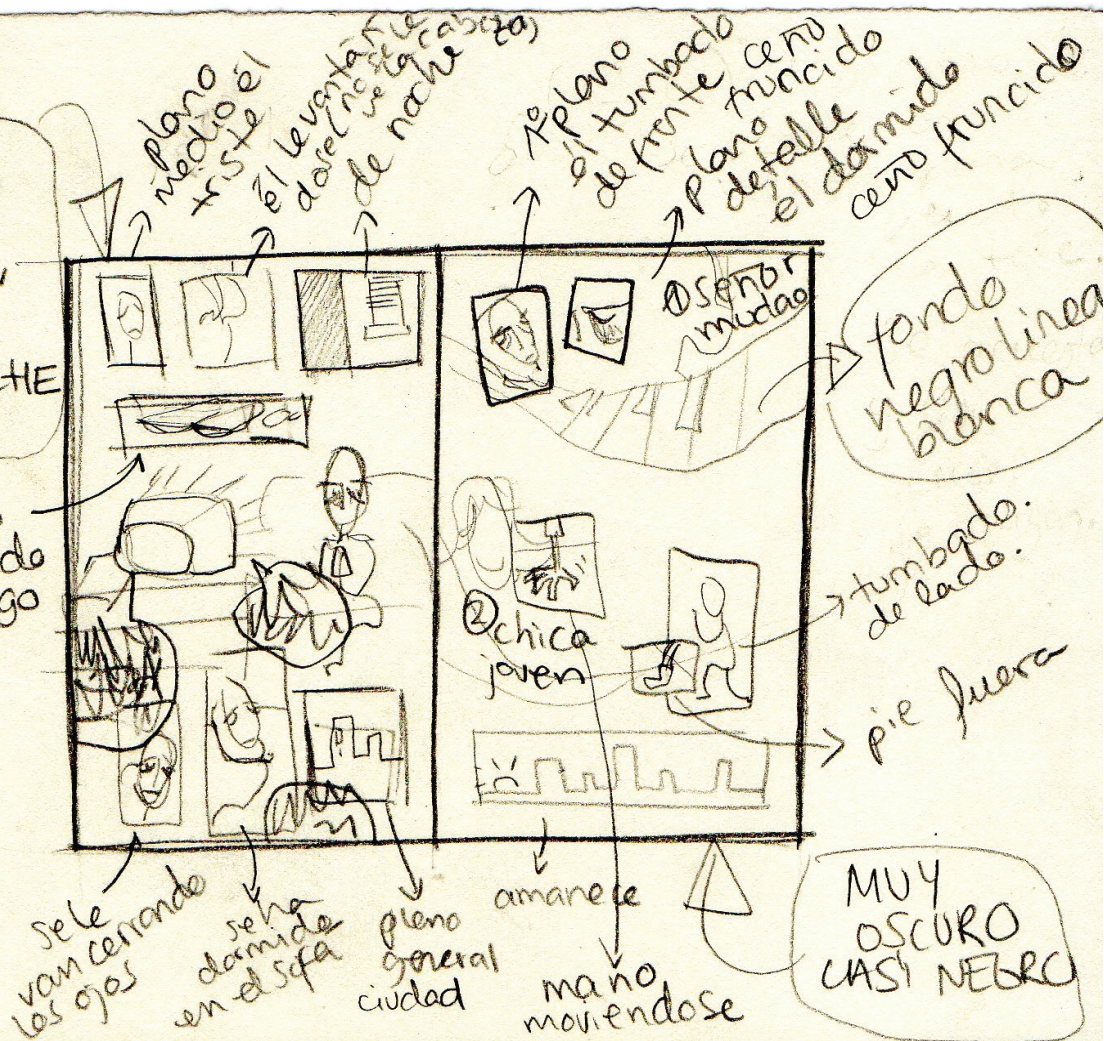 plano
medio él
triste
él levantándose
no se
ve la cabeza
de noche
1º plano
él tumbado
de frente ceño
fruncido
plano
detalle
él dormido
ceño fruncido
① señor
② chica
joven
fondo
negro línea
blanca
tumbado.
de lado.
pie fuera
se le
van cerrando
los ojos
se ha
dormido
en el sofá
general
ciudad
amanece
mano
moviéndose
MUY
OSCURO
CASI NEGRO